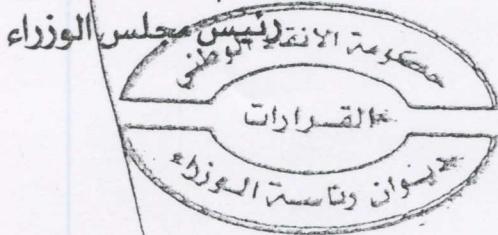 رئيس مجلس الوزراء
حكومة الانقاذ الوطني
القرارات
ديوان رئاسة الوزراء